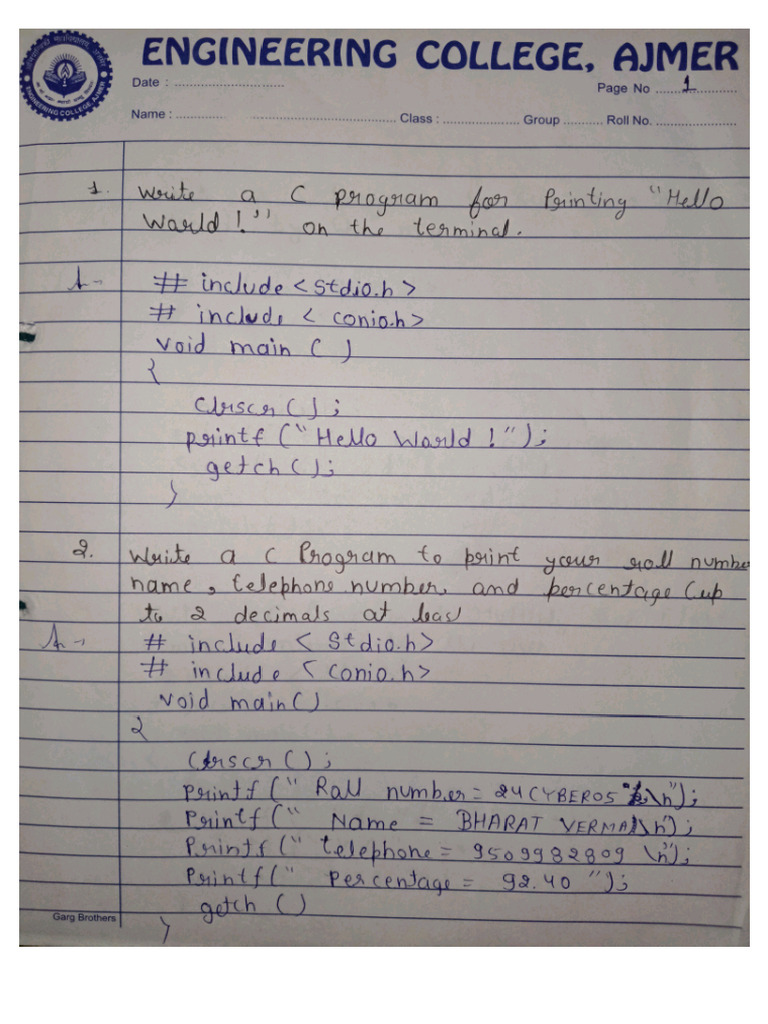 ENGINEERING COLLEGE, AJMER
ENGINEERING COLLEGE, AJMER
Date : ............................
Page No ..... 1 ............
Name : ............ ..................................... Class : .................... Group .......... Roll No. .....................
1. Write a C program for Printing "Hello
World !" on the terminal.
A- # include <Stdio.h>
# include < conio.h>
void main ( )
{
Clrscr ( ) ;
printf ("Hello World !");
getch ( );
}
2. Write a C Program to print your roll number
name, telephone number, and percentage (up
to 2 decimals at least
A- # include < Stdio.h>
# include < Conio.h>
void main ( )
{
Clrscr ( );
Printf (" Roll number = 24CYBER05 \n");
Printf (" Name = BHARAT VERMA \n");
Printf (" telephone = 9509982809 \n");
Printf (" Percentage = 92.40 ");
getch ( )
}
Garg Brothers